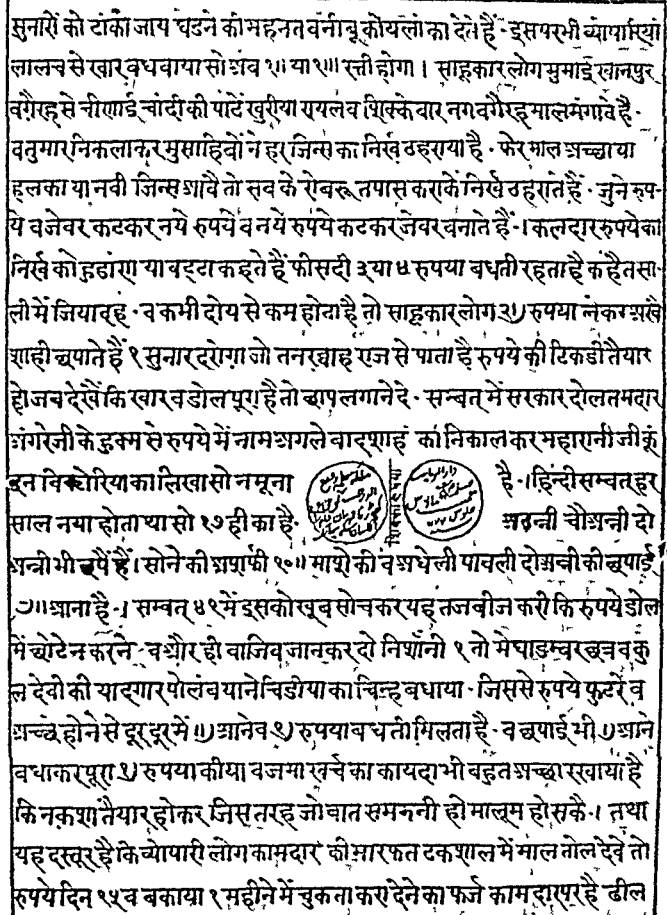 सुनारों को टांका जाय घडने की महनत व नीबू कोयलां का देते हैं - इस पर भी व्यापारियां
लालच से खार बधवाया सो अब १॥ या १॥ रत्ती होगा । साहूकार लोग मुमाई खानपुर
वगैरह से चीणाई चांदी की पाटें खुरीया रायलव शिक्केवार नग वगैरह माल मंगावै है -
व तुमार निकलाकर मुसाहिबों ने हर जिन्स का निर्ख ठहराया है - फेर माल अच्छा या
हलका या नवी जिन्स आवै तो सब के रोबरू तपास कराकें निर्ख ठहराते हैं - जुने रुप-
ये व जेवर कटकर नये रुपये व नये रुपये कटकर जेवर बनाते हैं - । कलदार रुपये का
निर्ख को हुडांण या बट्टा कहते हैं फीसदी ३ या ४ रुपया बधती रहता है कहैतसा-
ली में जियादह - व कभी दोय से कम होता है तो साहूकार लोग २) रुपया
शाही छपाते हैं १ सुनार दरोगा जो तनख्वाह राज से पाता है रुपये की टिकडी तैयार
हो जब देखें कि खार व डोल पूरा है तो छाप लगाने दे - सम्बत् में सरकार दोलतमदार
अंगरेजी के हुक्म से रुपये में नाम अगले बादशाह का निकालकर महारानी जी कूं
इन विक्टोरिया का लिखा सो नमूना है - । हिंदी सम्बत् हर
साल नया होता था सो १७ ही का है - अठन्नी चौअन्नी दो
अन्नी भी छपें हैं । सोने की अशर्फी १०॥ माशे की व अधेली पावली दोअन्नी की छपाई
॥ आना है - । सम्बत् ४९ में इसको खूब सोचकर यह तजवीज करी कि रुपये डोल
में छोटे न करने - व और ही वाजिब जानकर दो निशांनी १ तो मेघाडम्बर छत्र व कु
ल देवी की यादगार पोलंब याने चिडीया का चिन्ह बधाया - जिससे रुपये फुटरे व
अच्छे होने से दूर दूर में ॥) आने व १) रुपया बधती मिलता है - व छपाई भी ।) आने
बधाकर पूरा १) रुपया कीया व जमा खर्च का कायदा भी बहुत अच्छा रखाया है
कि नकशा तैयार होकर जिस तरह जो बात समझनी हो मालूम हो सकै - । तथा
यह दस्तूर है कि व्योपारी लोग कामदार की मारफत टकशाल में माल तोल देवे तो
रुपये दिन १५ व बकाया १ महीने में चुकता करा देने का फर्ज कामदार पर है ढील